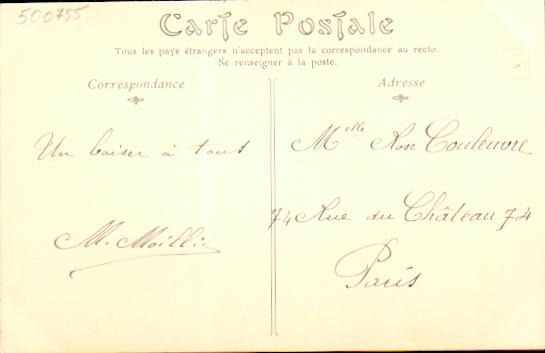 500755
Carte Postale
Tous les pays étrangers n'acceptent pas la correspondance au recto.
Se renseigner à la poste.
Correspondance
Un baiser à tous
M. Moillie
Adresse
Melle Rose Couleuvre
74 Rue du Château 74
Paris